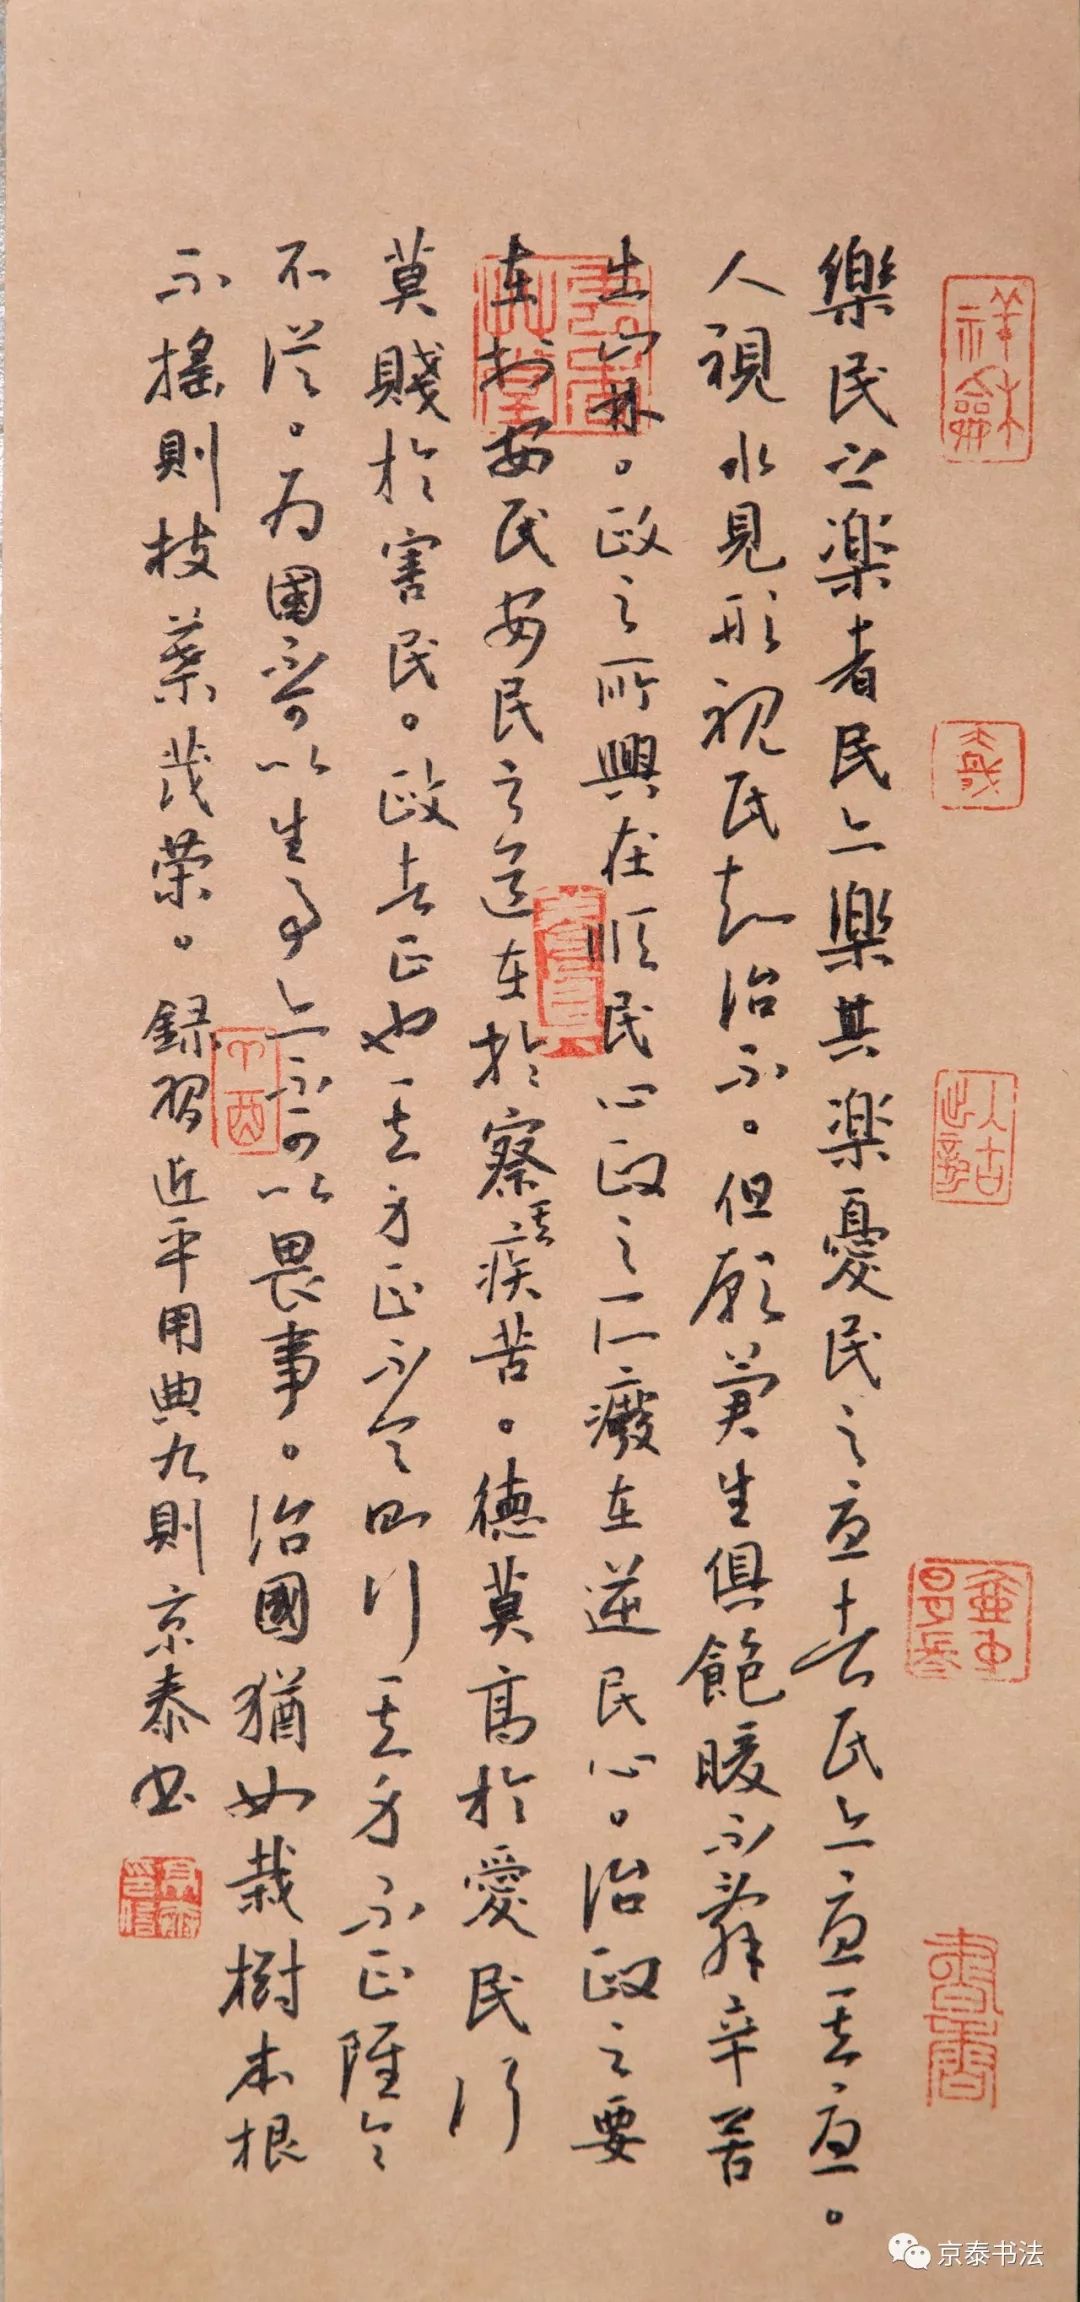 樂民之樂者民亦樂其樂憂民之憂者民亦憂其憂。
人視水見形視民知治不。但願蒼生俱飽暖不辭辛苦
出山林。政之所興在順民心政之所廢在逆民心。治政之要
在於安民安民之道在於察其疾苦。德莫高於愛民行
莫賤於害民。政者正也其身正不令而行其身不正雖令
不從。為國不可以生事亦不可以畏事。治國猶如栽樹本根
不搖則枝葉茂榮。錄習近平用典九則京泰书
祥龢
羲
丁酉
書香
京泰书法